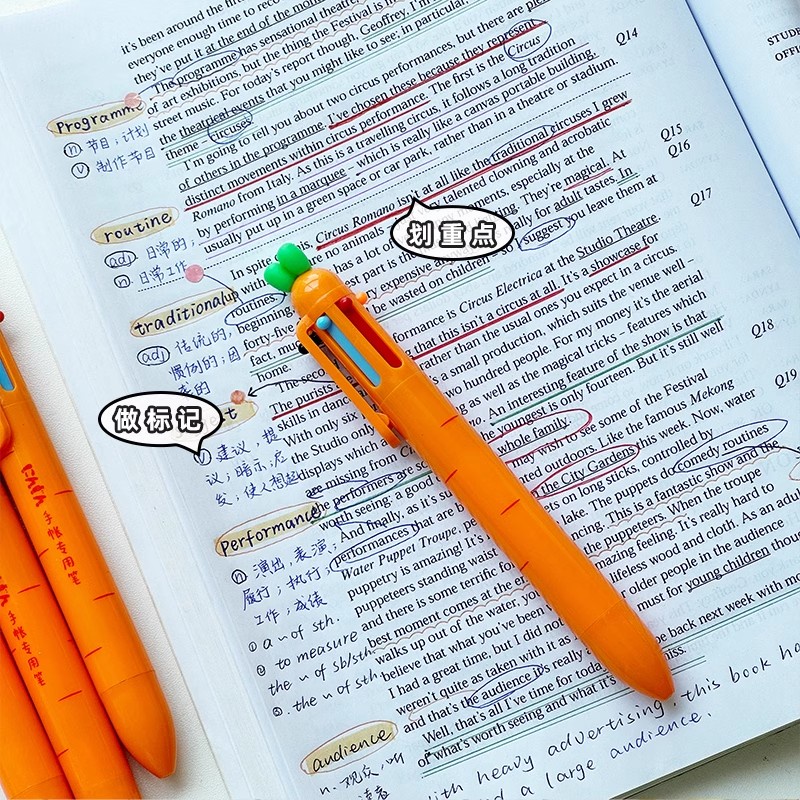 it's been around the
everyone enough time to reco
they've put it at the end of the month
The programme has sensational theatre
of art exhibitions, but the thing the Festival is
street music. For today's report though, Geoffrey, I'm
the theatrical events that you might like to see; in particular,
theme – circuses.
I'm going to tell you about two circus performances, but there are
of others in the programme. I've chosen these because they represent
distinct movements within circus performance. The first is the Circus
Romano from Italy. As this is a travelling circus, it follows a long tradition
by performing in a marquee – which is really like a canvas portable building,
usually put up in a green space or car park, rather than in a theatre or stadium.
In spite of this, Circus Romano isn't at all like the traditional circuses I grew
up with. There are no animals talented clowning and acrobatic
routines has a lot of especially at the
beginning, best part is the They're magical. At
forty-five very expensive really for adult tastes. In
fact, mu be wasted on children – so I suggest you leave them at
home.
The second performance is Circus Electrica at the Studio Theatre.
The purists that this isn't a circus at all. It's a showcase for
skills in dance rather than the usual ones you expect in a circum.
With only six is a small production, which suits the venue well –
the Studio only two hundred people. For my money it's the aerial
displays which as well as the magical tricks – features which
are missing from An interesting feature of the show is that
the performers are youngest is only fourteen. But it's still well
worth seeing: a good whole family.
And finally, as it's may wish to see some of the Festival
performances that are outdoors. Like the famous Mekong
Water Puppet Troupe, the City Gardens this week. Now, water
puppetry is amazing! It's ets on long sticks, controlled by
puppeteers standing waist lake. The puppets do comedy routines
and there is some terrific ncing. This is a fantastic show and the
best moment comes at the the puppeteers. When the troupe
walks up out of the water, you amazing feeling. It's really hard to
believe that what you've been lifeless wood and cloth. As an adult
I had a great time, but I did not older people in the audience
weren't quite as taken with it as must for young children though
and that's the audience it's really
Well, that's all I've time for today be back next week with more
of what's worth seeing and what's miss.
Q14
Q15
Q16
Q17
Q18
Q19
STUDE
OFFI
Programm
n 节目；计划
v 制作节目
routine
adj 日常的；
n. 日常工作
traditional
adj 传统的，
惯例的；因
t
建议，提
议；暗示；启
发；使人想起
Performance
n 演出，表演；
履行；执行；
工作；成绩
① a ~ of sth.
② to measure
the ~ of sb/sth
③. the ~ of sth
audience
n. 观众，听
读者
this book ha
with heavy advertising,
a large audience.
划重点
做标记
手帐专用笔
手帐专用笔